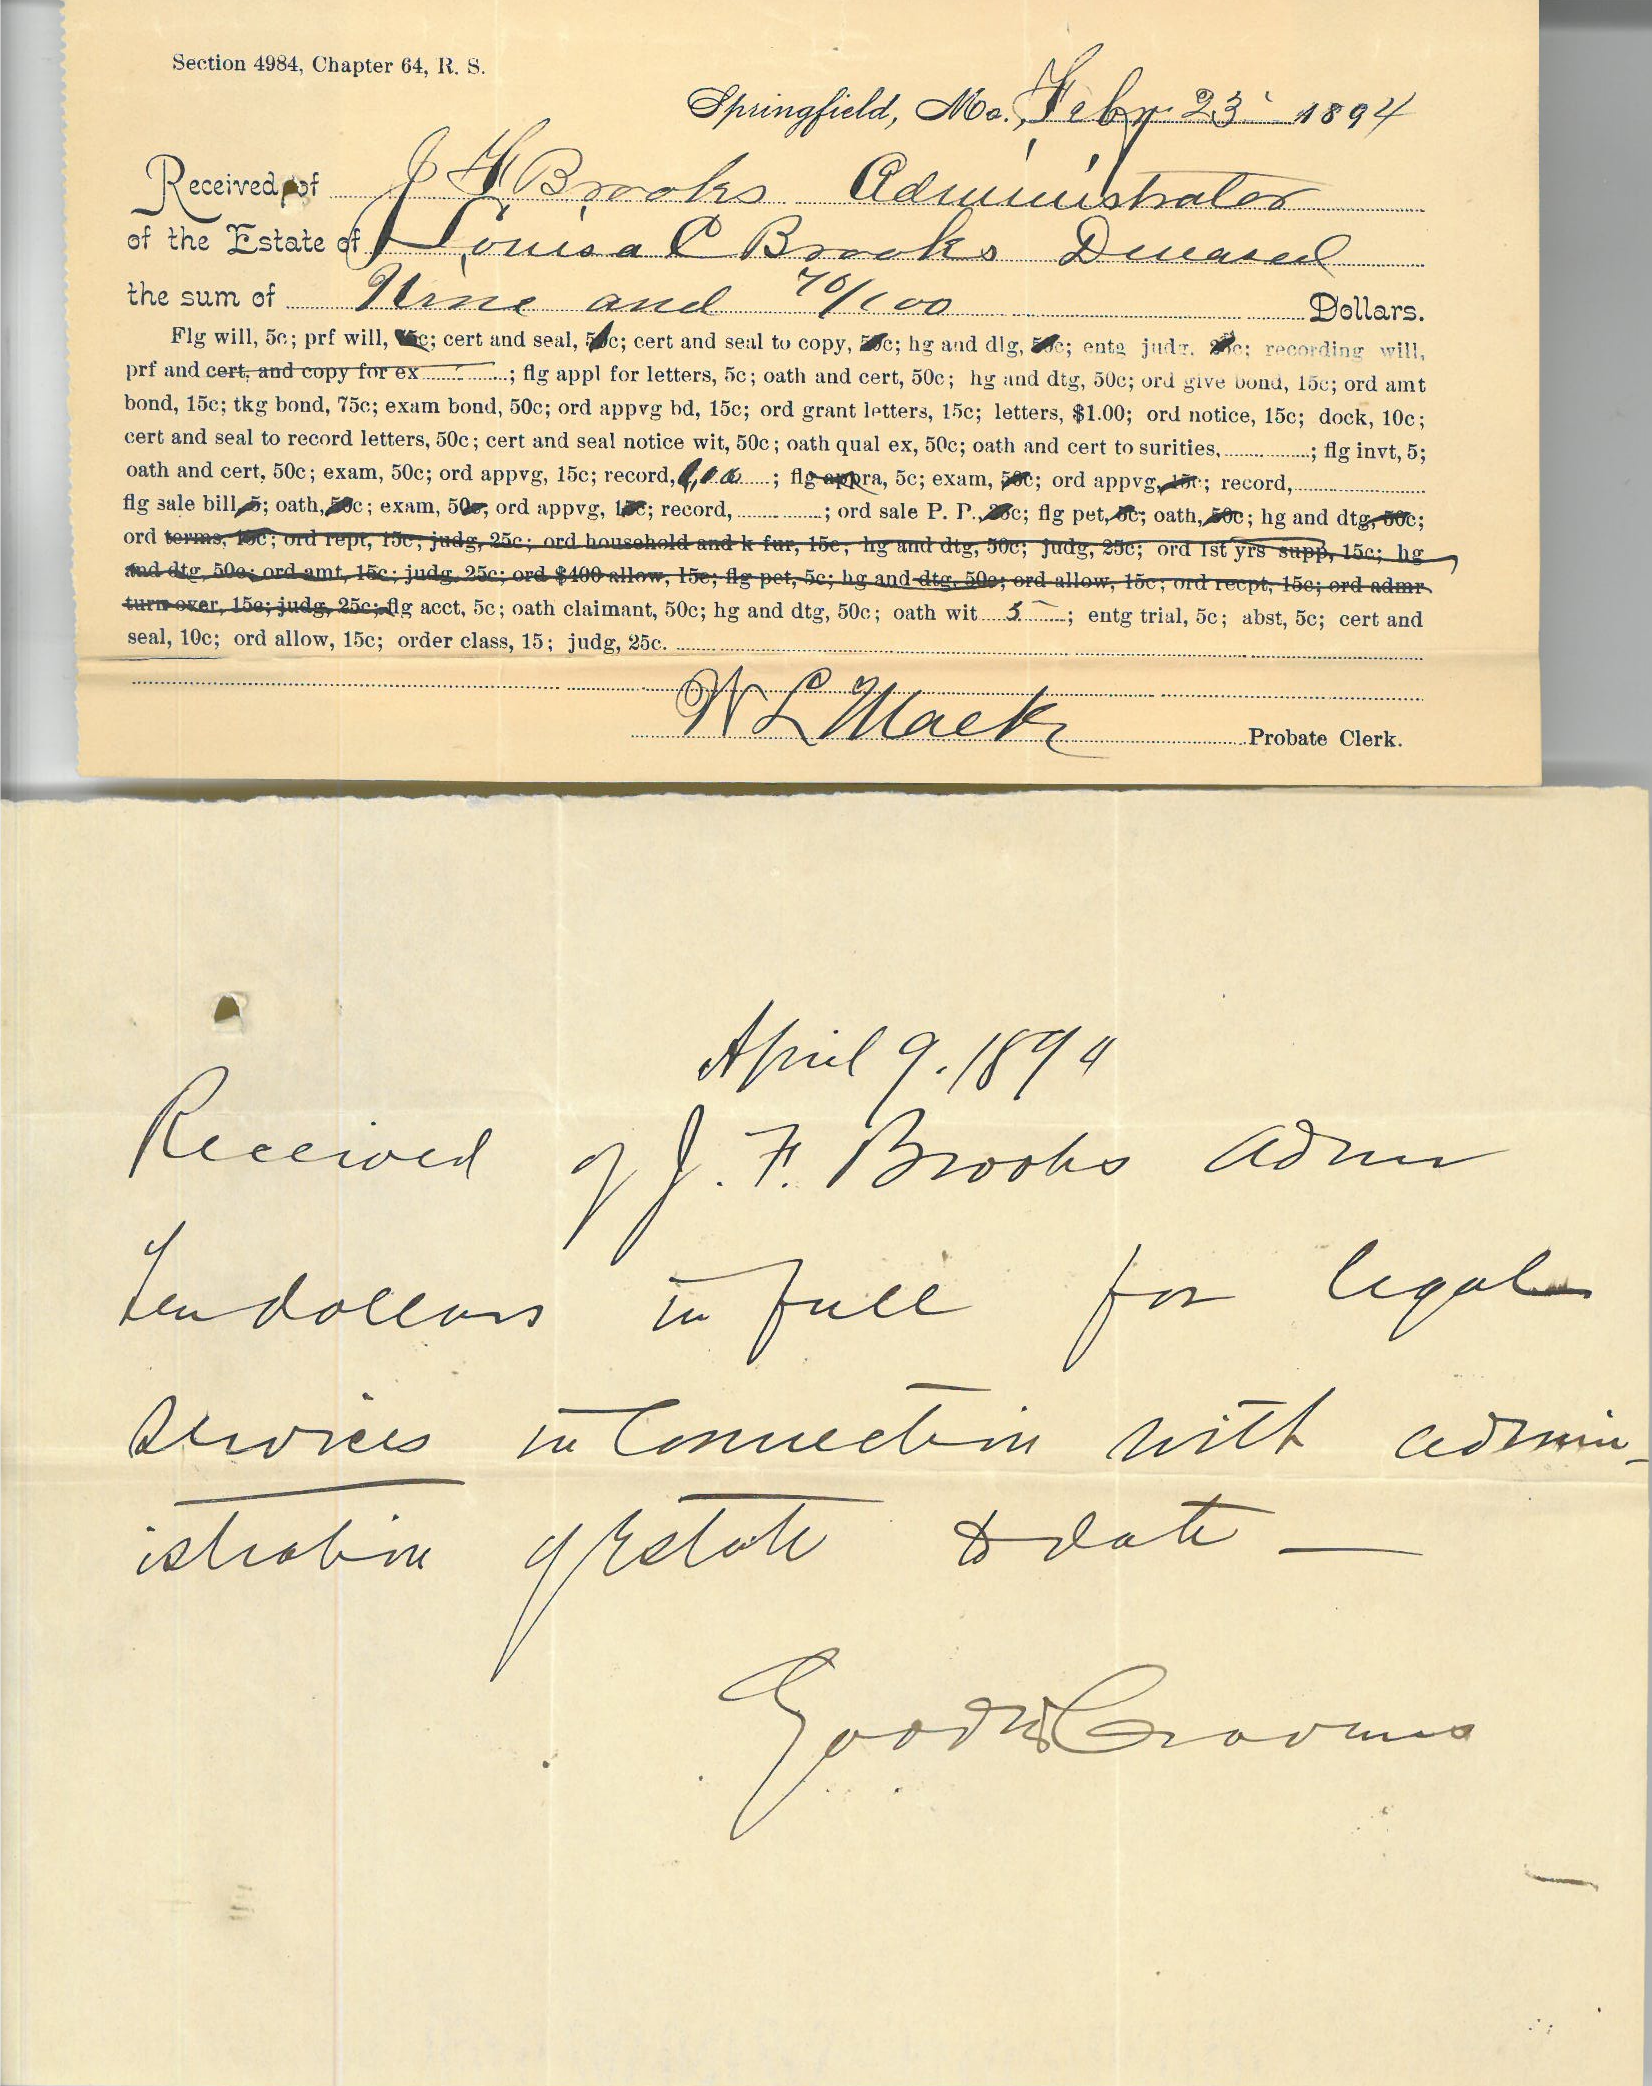 Section 4984, Chapter 64, R. S.
Springfield, Mo., Feby 23 1894
Received of J F Brooks Administrator
of the Estate of Louisa C Brooks Deceased
the sum of Nine and 70/100 Dollars.
Flg will, 5c; prf will, 75c; cert and seal, 50c; cert and seal to copy, 50c; hg and dlg, 50c; entg judg. 25c; recording will,
prf and cert. and copy for ex ; flg appl for letters, 5c; oath and cert, 50c; hg and dtg, 50c; ord give bond, 15c; ord amt
bond, 15c; tkg bond, 75c; exam bond, 50c; ord appvg bd, 15c; ord grant letters, 15c; letters, $1.00; ord notice, 15c; dock, 10c;
cert and seal to record letters, 50c; cert and seal notice wit, 50c; oath qual ex, 50c; oath and cert to surities, ; flg invt, 5;
oath and cert, 50c; exam, 50c; ord appvg, 15c; record, 1,00 ; flg appra, 5c; exam, 50c; ord appvg, 15c; record,
flg sale bill, 5; oath, 50c; exam, 50c, ord appvg, 15c; record, ; ord sale P. P., 25c; flg pet, 5c; oath, 50c; hg and dtg, 50c;
ord terms, 15c; ord rept, 15c; judg, 25c; ord household and k fur, 15c; hg and dtg, 50c; judg, 25c; ord 1st yrs supp, 15c; hg
and dtg, 50c; ord amt, 15c; judg, 25c; ord $400 allow, 15c; flg pet, 5c; hg and dtg, 50c; ord allow, 15c; ord recpt, 15c; ord admr
turn over, 15c; judg, 25c; flg acct, 5c; oath claimant, 50c; hg and dtg, 50c; oath wit 5 ; entg trial, 5c; abst, 5c; cert and
seal, 10c; ord allow, 15c; order class, 15; judg, 25c.
W L Mack Probate Clerk.
April 9. 1894
Received of J. F. Brooks admr
ten dollars in full for legal
services in connection with admin-
istration of Estate to date —
Goode & Cravens